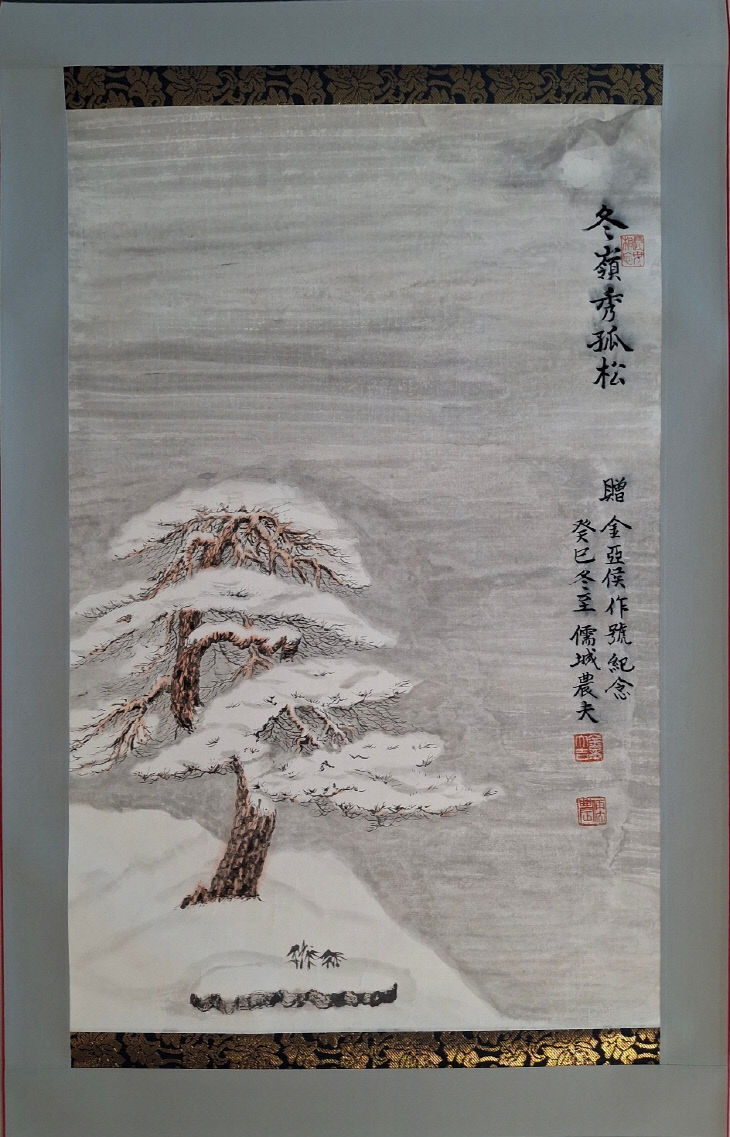 冬嶺秀孤松
贈 金亞侯作號紀念
癸巳冬至 儒城農夫